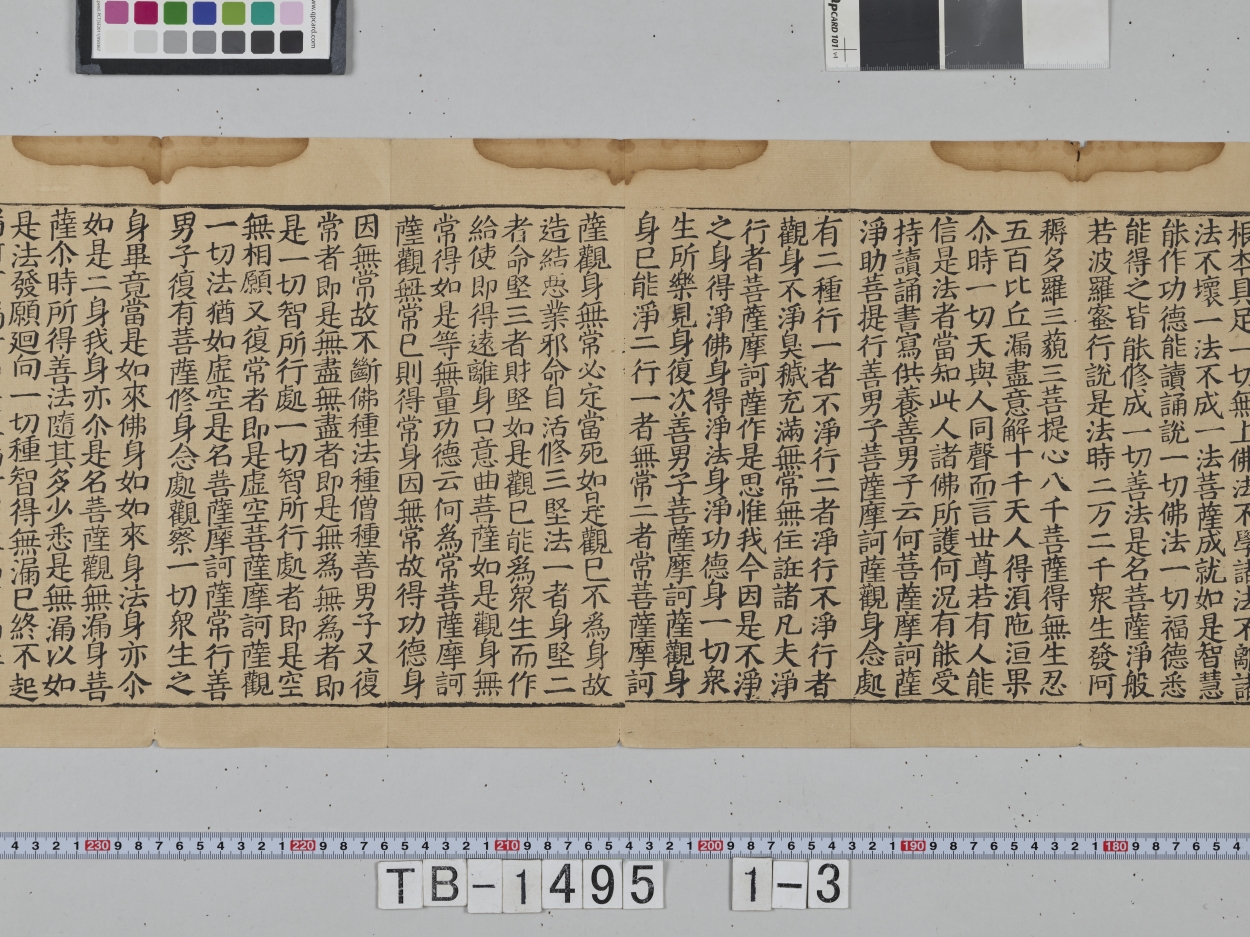 根本具足一切無上佛法不學諸法不離諸
法不壞一法不成一法菩薩成就如是智慧
能作功德能讀誦說一切佛法一切福德悉
能得之皆能修成一切善法是名菩薩淨般
若波羅蜜行說是法時二万二千衆生發阿
耨多羅三藐三菩提心八千菩薩得無生忍
五百比丘漏盡意解十千天人得湏陁洹果
尒時一切天與人同聲而言世尊若有人能
信是法者當知此人諸佛所護何況有能受
持讀誦書寫供養善男子云何菩薩摩訶薩
淨助菩提行善男子菩薩摩訶薩觀身念處
有二種行一者不淨行二者淨行不淨行者
觀身不淨臭穢充滿無常無住誑諸凡夫淨
行者菩薩摩訶薩作是思惟我今因是不淨
之身得淨佛身得淨法身淨功德身一切衆
生所樂見身復次善男子菩薩摩訶薩觀身
身已能淨二行一者無常二者常菩薩摩訶
薩觀身無常必定當死如是觀已不為身故
造結惡業邪命自活修三堅法一者身堅二
者命堅三者財堅如是觀已能爲衆生而作
給使即得遠離身口意曲菩薩如是觀身無
常得如是等無量功德云何爲常菩薩摩訶
薩觀無常已則得常身因無常故得功德身
因無常故不斷佛種法種僧種善男子又復
常者即是無盡無盡者即是無爲無爲者即
是一切智所行處一切智所行處者即是空
無相願又復常者即是虛空菩薩摩訶薩觀
一切法猶如虛空是名菩薩摩訶薩常行善
男子復有菩薩修身念處觀察一切衆生之
身畢竟當是如來佛身如如來身法身亦尒
如是二身我身亦尒是名菩薩觀無漏身菩
薩尒時所得善法隨其多少悉是無漏以如
是法發願迴向一切種智得無漏已終不起
TB-1495 1-3